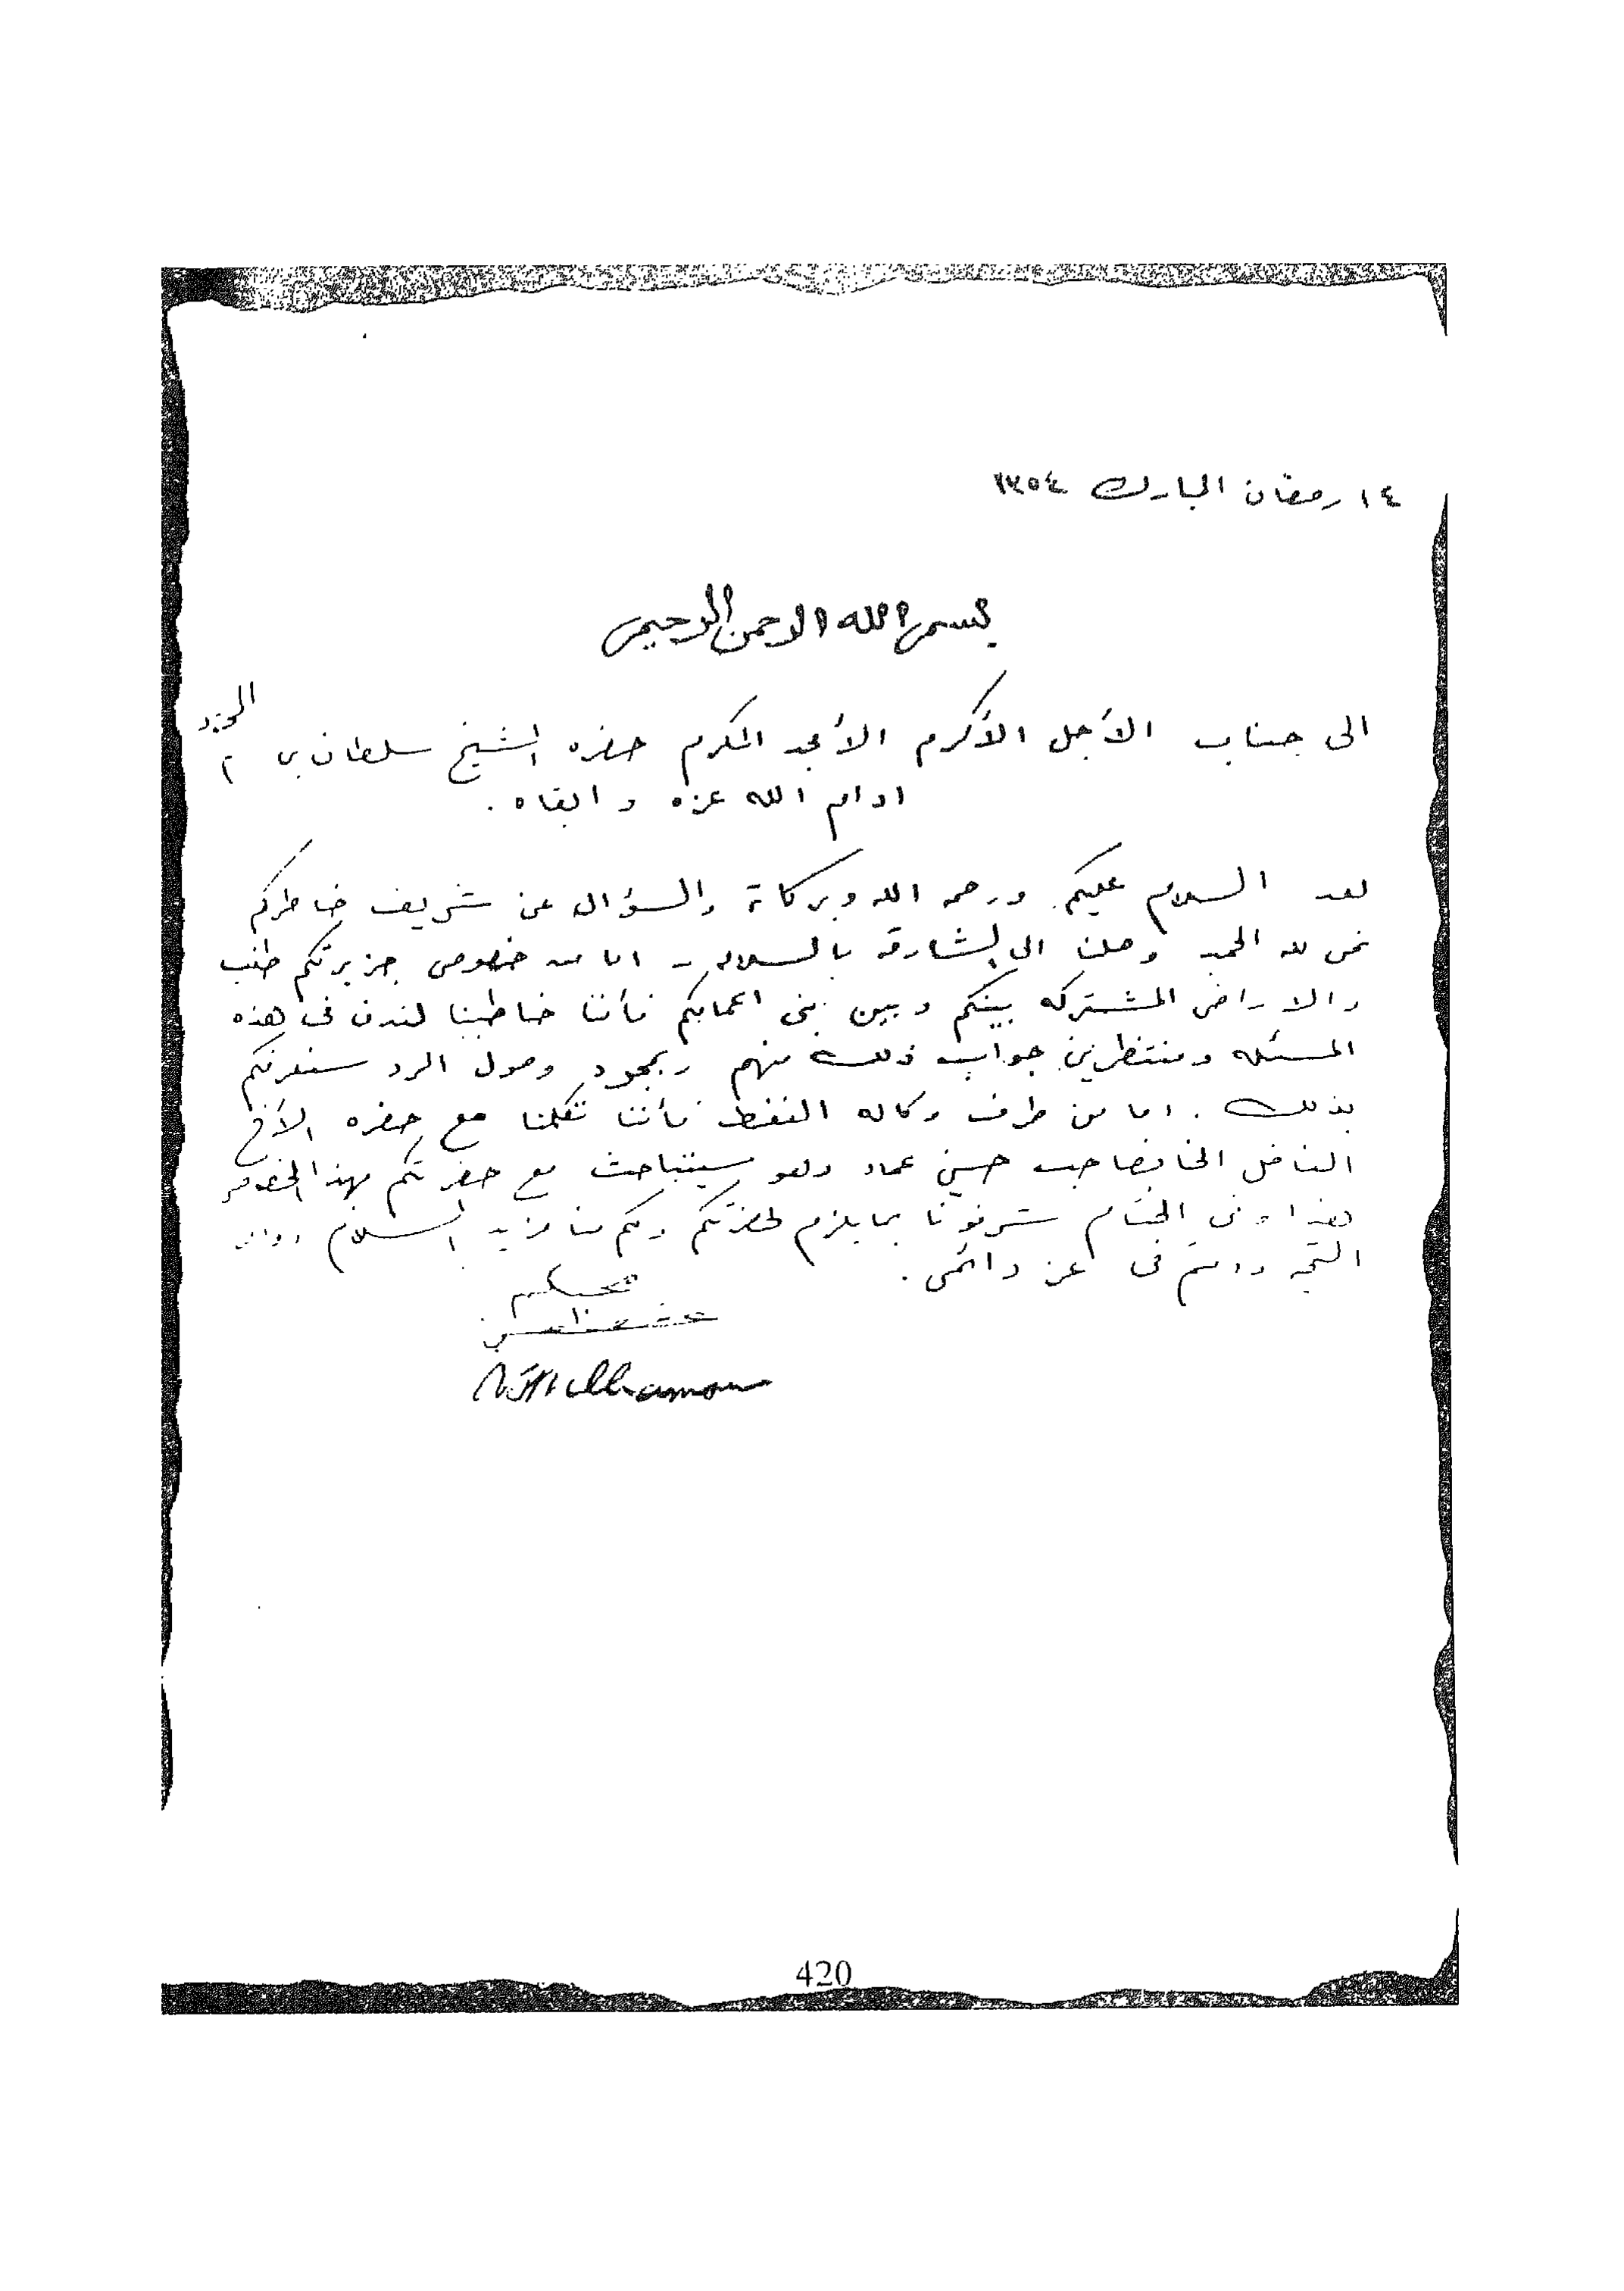 ١٤ رمضان المبارك ١٣٥٤
بسم الله الرحمن الرحيم
الى جناب الأجل الأكرم الأمجد المكرم حضره الشيخ سلطان بن
ادام الله عزه وابقاه .
بعد السلام عليكم ورحمه الله وبركاته والسؤال عن شريف خاطركم
نحن لله الحمد وصلنا الى الشارقه بالسلامه - اما من خصوص جزيرتكم طنب
والاراضى المشتركه بينكم وبين بنى اعمامكم فأننا خاطبنا لندن فى هذه
المسئله ومنتظرين جواب ذلك منهم وبمجرد وصول الرد سنعرفكم
بذلك . اما من طرف وكاله النفط فأننا تكلمنا مع حضره الأخ
الفاضل الخانصاحب حسين عماد وهو سيتباحث مع حضرتكم بهذا الخصوص
هذا وفى الختام شرفونا بما يلزم لحضرتكم ولكم منا مزيد السلام
التحيه ودمتم فى عز دائمى .
محبكم
420